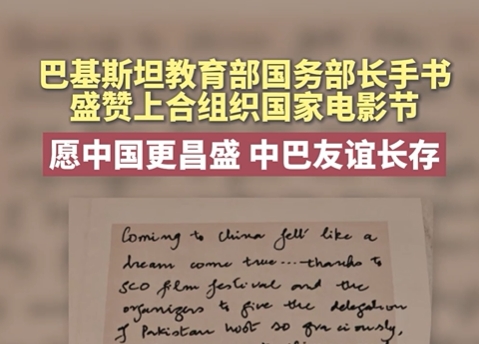 巴基斯坦教育部国务部长手书
盛赞上合组织国家电影节
愿中国更昌盛 中巴友谊长存
Coming to China felt like a
dream come true....thanks to
SCO film festival and the
organizers to give the delegation
of Pakistan host so graciously,